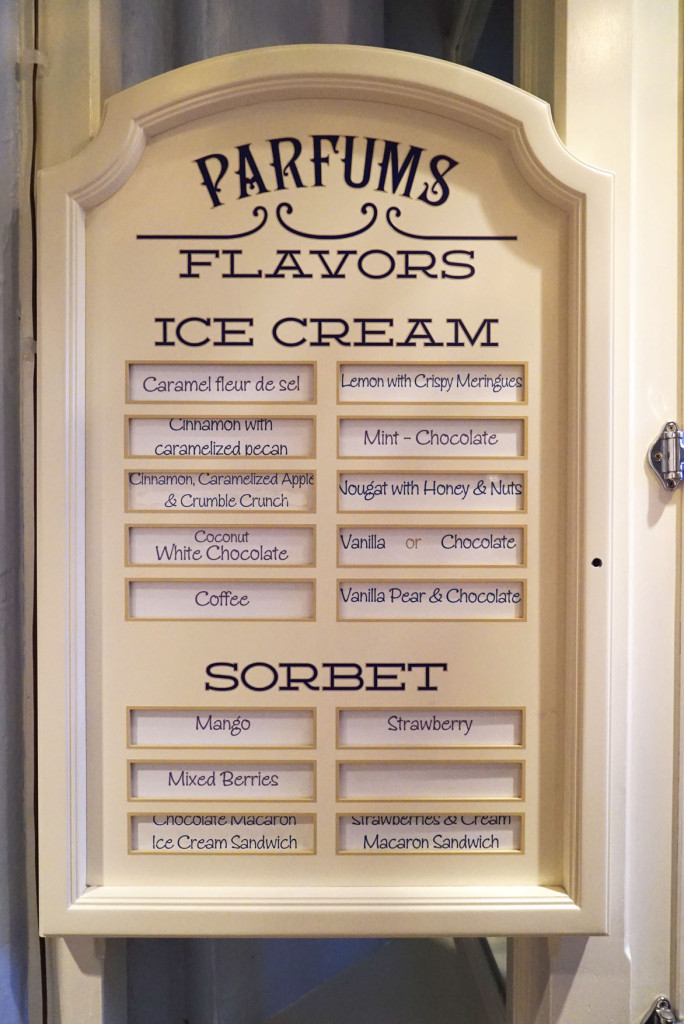 PARFUMS
FLAVORS
ICE CREAM
Caramel fleur de sel
Lemon with Crispy Meringues
Cinnamon with
caramelized pecan
Mint - Chocolate
Cinnamon, Caramelized Apple
& Crumble Crunch
Nougat with Honey & Nuts
Coconut
White Chocolate
Vanilla or Chocolate
Coffee
Vanilla Pear & Chocolate
SORBET
Mango
Strawberry
Mixed Berries
Chocolate Macaron
Ice Cream Sandwich
Strawberries & Cream
Macaron Sandwich